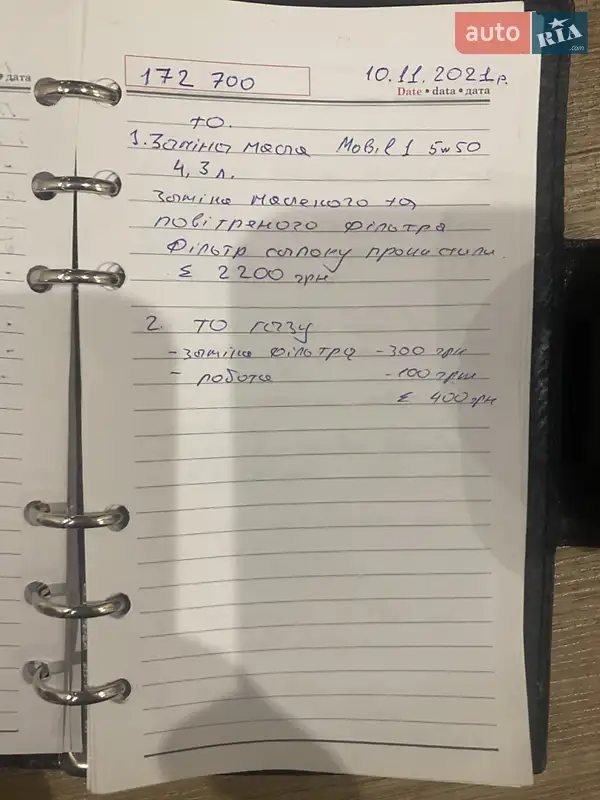 auto RIA .com
дата
172 700
10.11.2021р.
Date • data • дата
ТО.
1. Заміна масла Mobil 1 5w50
4,3 л.
Заміна масленого та
повітреного фільтра
Фільтр салону прочистили.
Σ 2200 грн
2. ТО газу
- заміна фільтра - 300 грн
- робота - 100 грн
Σ 400 грн